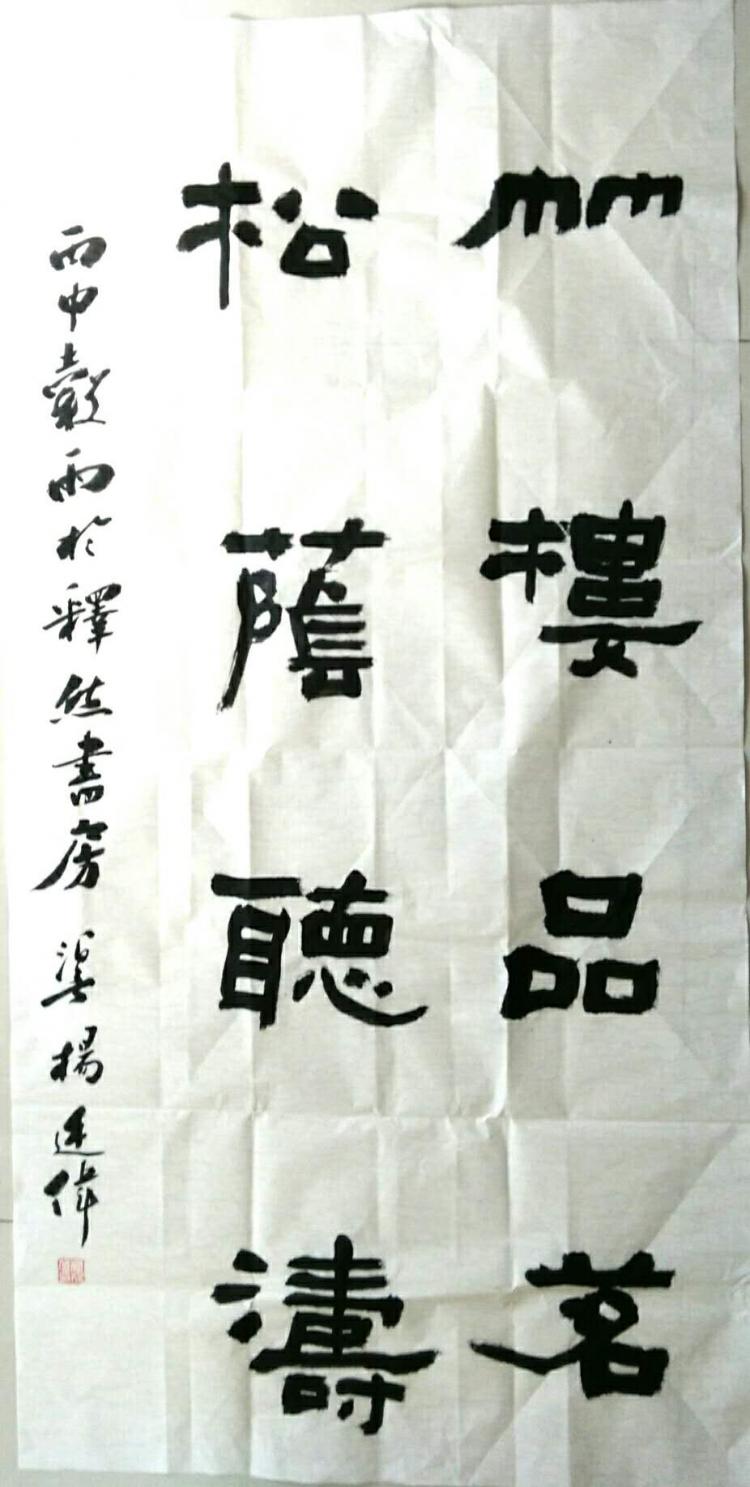 竹樓品茗
松蔭聽濤
丙申穀雨於釋然書房 楊 偉